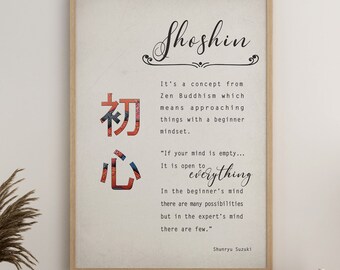 Shoshin
It's a concept from
Zen Buddhism which
means approaching
things with a beginner
mindset.
初
心
"If your mind is empty...
It is open to
everything
In the beginner's mind
there are many possibilities
but in the expert's mind
there are few."
Shunryu Suzuki